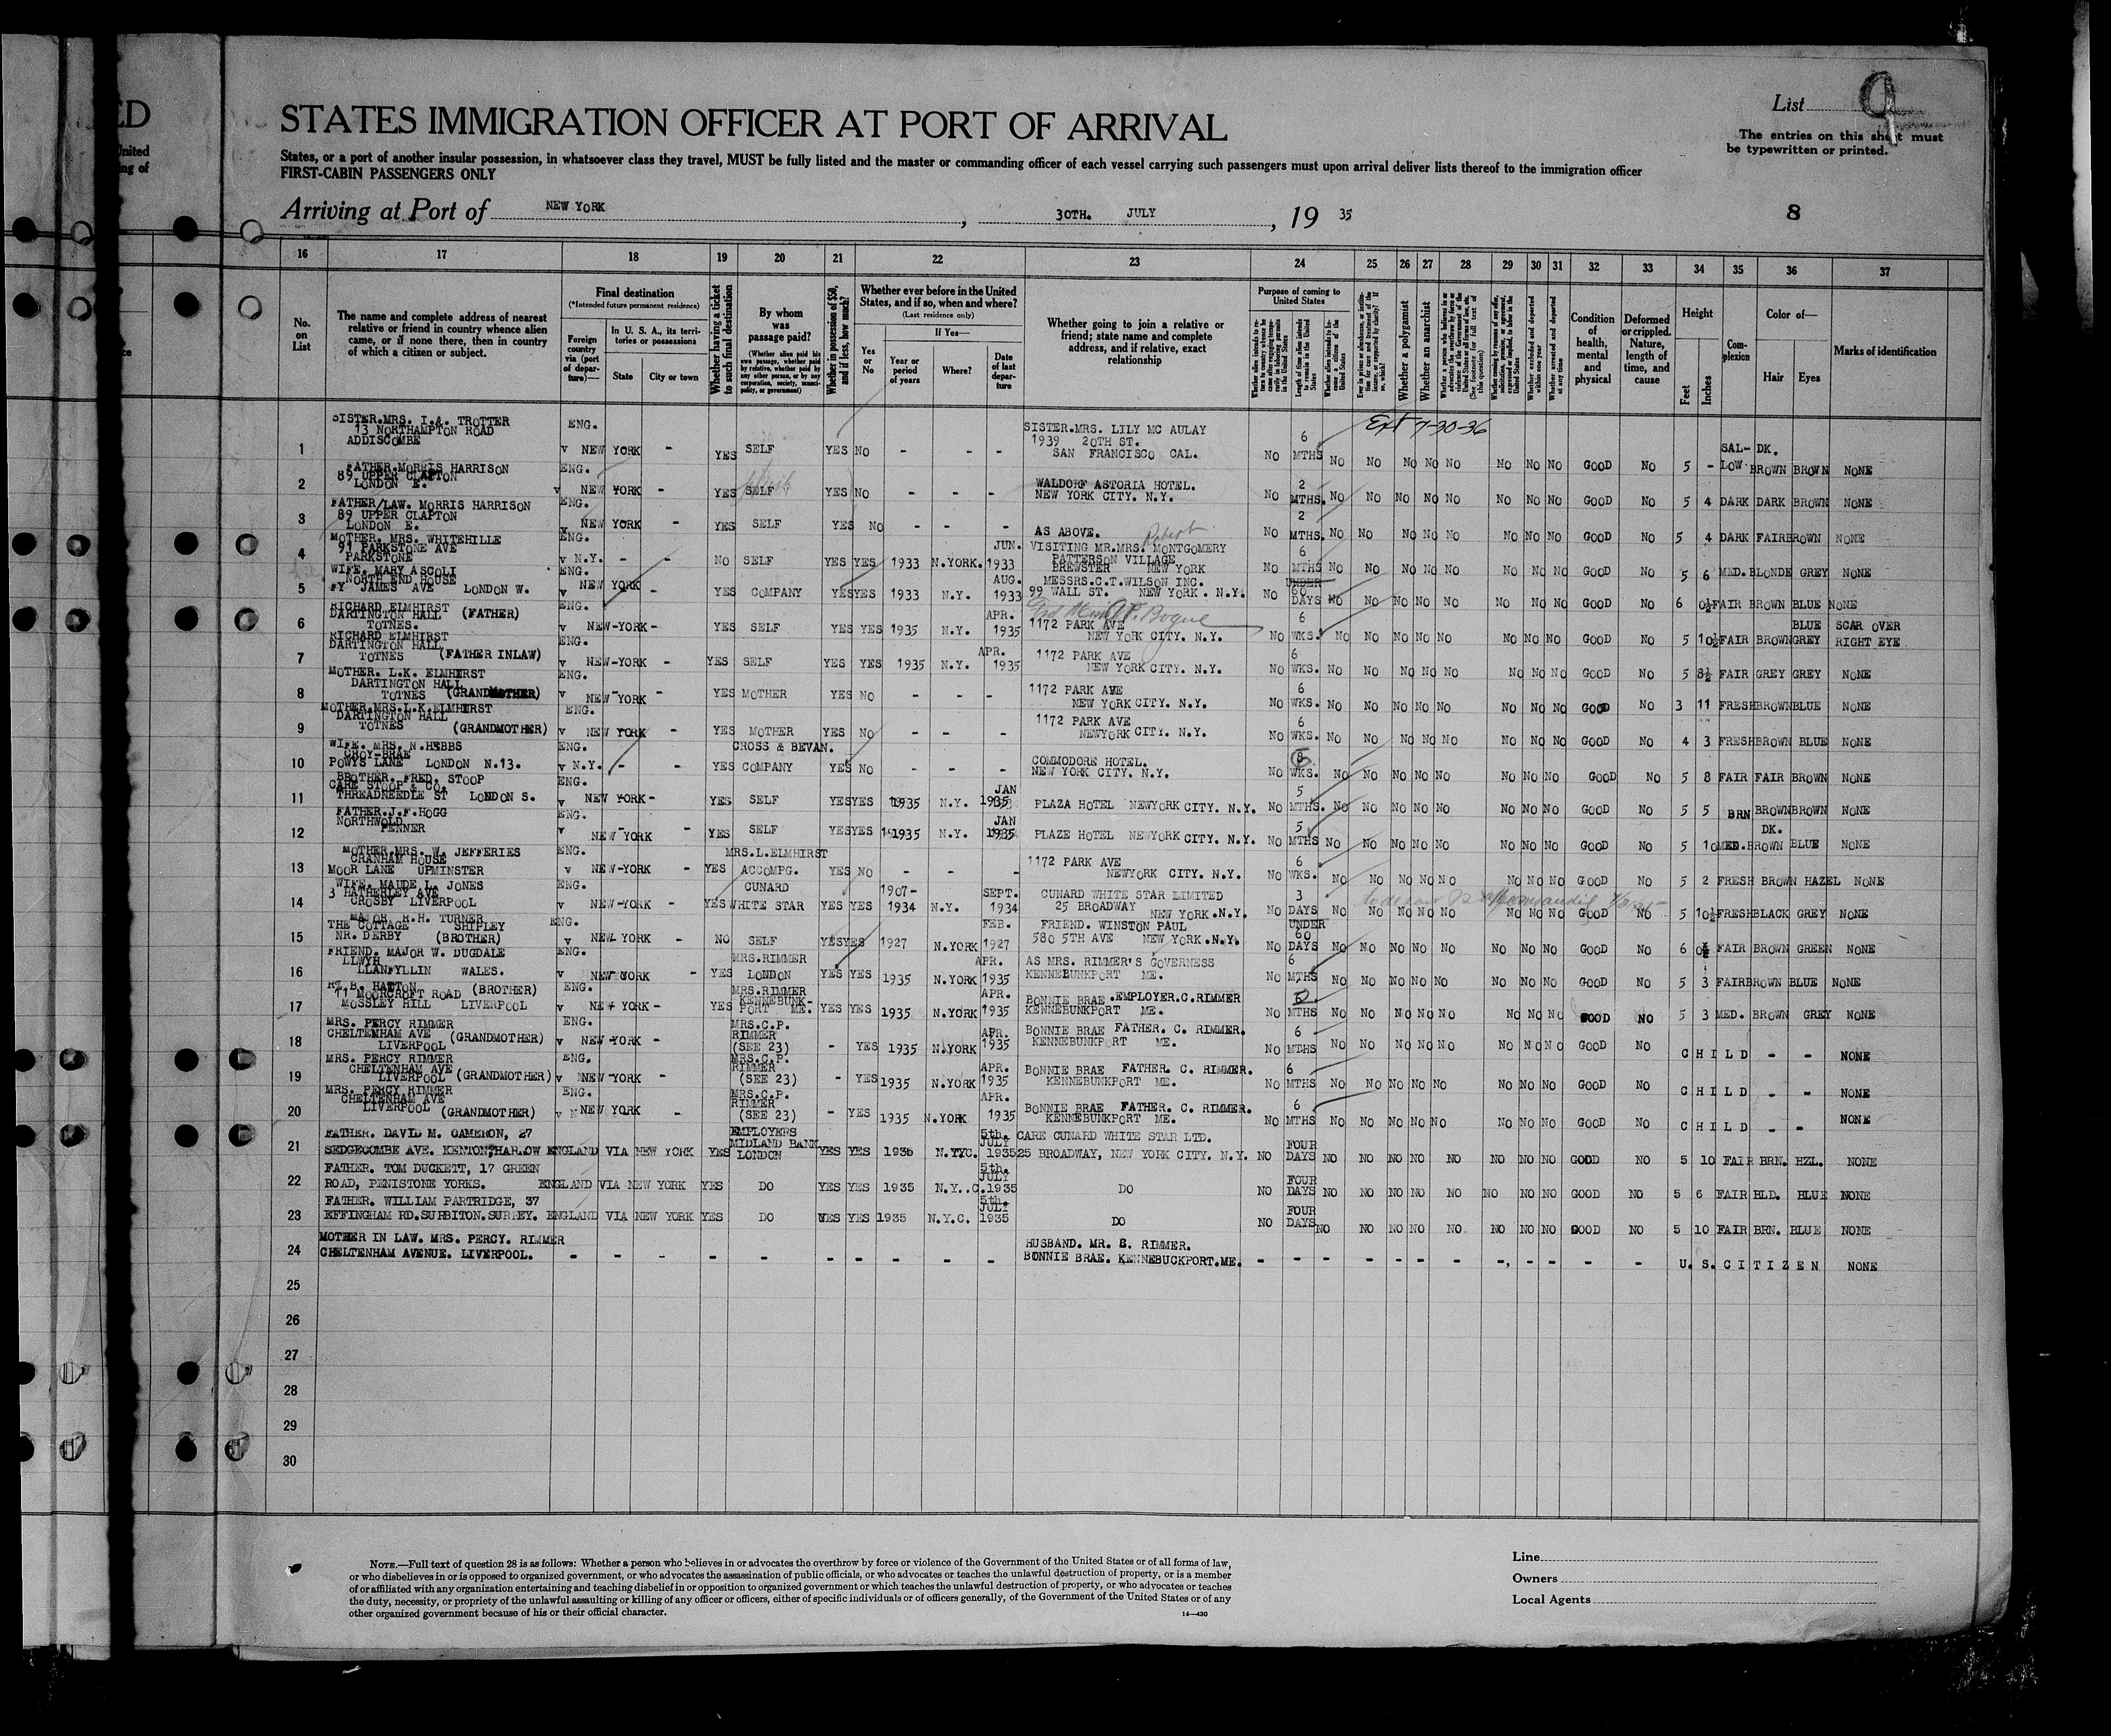 ED
United
ing of
STATES IMMIGRATION OFFICER AT PORT OF ARRIVAL
List 9
The entries on this sheet must
be typewritten or printed.
States, or a port of another insular possession, in whatsoever class they travel, MUST be fully listed and the master or commanding officer of each vessel carrying such passengers must upon arrival deliver lists thereof to the immigration officer
FIRST-CABIN PASSENGERS ONLY
Arriving at Port of NEW YORK, 30TH. JULY, 19 35
8
16 17 18 19 20 21 22 23 24 25 26 27 28 29 30 31 32 33 34 35 36 37
No. on List
The name and complete address of nearest relative or friend in country whence alien came, or if none there, then in country of which a citizen or subject.
Final destination
(*Intended future permanent residence)
Foreign country via (port of departure)—
In U. S. A., its territories or possessions
State
City or town
Whether having a ticket to such final destination
By whom was passage paid?
(Whether alien paid his own passage, whether paid by relative, whether paid by any other person, or by any corporation, society, municipality, or government)
Whether in possession of $50, and if less, how much?
Whether ever before in the United States, and if so, when and where?
(Last residence only)
Yes or No
If Yes—
Year or period of years
Where?
Date of last departure
Whether going to join a relative or friend; state name and complete address, and if relative, exact relationship
Purpose of coming to United States
Length of time alien intends to remain in the United States
Whether a polygamist
Whether an anarchist
Condition of health, mental and physical
Deformed or crippled. Nature, length of time, and cause
Height
Feet
Inches
Complexion
Color of—
Hair
Eyes
Marks of identification
Ext 7-30-36
1 SISTER.MRS. I.A. TROTTER 13 NORTHAMPTON ROAD ADDISCOMBE ENG. v NEW YORK - YES SELF YES NO - - - SISTER.MRS. LILY MC AULAY 1939 20TH ST. SAN FRANCISCO CAL. NO 6 MTHS NO NO NO NO NO NO NO NO GOOD NO 5 - SAL-LOW DK. BROWN BROWN NONE
2 FATHER.MORRIS HARRISON 89 UPPER CLAPTON LONDON E. ENG. v NEW YORK - YES SELF YES NO - - - WALDORF ASTORIA HOTEL. NEW YORK CITY. N.Y. NO 2 MTHS. NO NO NO NO NO NO NO NO GOOD NO 5 4 DARK DARK BROWN NONE
3 FATHER/LAW. MORRIS HARRISON 89 UPPER CLAPTON LONDON E. ENG. v NEW YORK - YES SELF YES NO - - - AS ABOVE. NO 2 MTHS. NO NO NO NO NO NO NO NO GOOD NO 5 4 DARK FAIR BROWN NONE
4 MOTHER. MRS. WHITEHILLE 91 PARKSTONE AVE PARKSTONE ENG. v N.Y. - - NO SELF YES YES 1933 N.YORK. JUN. 1933 VISITING MR.MRS. Robert MONTGOMERY PATTERSON VILLAGE BREWSTER NEW YORK NO 6 MTHS NO NO NO NO NO NO NO NO GOOD NO 5 6 MED. BLONDE GREY NONE
5 WIFE. MARY ASCOLI NORTH END HOUSE FY JAMES AVE LONDON W. ENG. NEW YORK - YES COMPANY YES YES 1933 N.Y. AUG. 1933 MESSRS.C.T.WILSON INC. 99 WALL ST. NEW YORK. N.Y. NO UNDER 60 DAYS NO NO NO NO NO NO NO NO GOOD NO 6 0½ FAIR BROWN BLUE NONE
6 RICHARD ELMHIRST DARTINGTON HALL (FATHER) TOTNES. ENG. v NEW-YORK- YES SELF YES YES 1935 N.Y. APR. 1935 1172 PARK AVE NEW YORK CITY. N.Y. NO 6 WKS. NO NO NO NO NO NO NO NO GOOD NO 5 10½ FAIR BROWN BLUE GREY SCAR OVER RIGHT EYE
7 RICHARD ELMHIRST DARTINGTON HALL TOTNES (FATHER INLAW) ENG. v NEW-YORK - YES SELF YES YES 1935 N.Y. APR. 1935 1172 PARK AVE NEW YORK CITY. N.Y. NO 6 WKS. NO NO NO NO NO NO NO NO GOOD NO 5 8½ FAIR GREY GREY NONE
8 MOTHER. L.K. ELMHIRST DARTINGTON HALL TOTNES (GRANDMOTHER) ENG. v NEW YORK - YES MOTHER YES NO - - - 1172 PARK AVE NEW YORK CITY. N.Y. NO 6 WKS. NO NO NO NO NO NO NO NO GOOD NO 3 11 FRESH BROWN BLUE NONE
9 MOTHER.MRS.L.K.ELMHIRST DARTINGTON HALL TOTNES (GRANDMOTHER) ENG. v NEW YORK - YES MOTHER YES NO - - - 1172 PARK AVE NEWYORK CITY. N.Y. NO 6 WKS. NO NO NO NO NO NO NO NO GOOD NO 4 3 FRESH BROWN BLUE NONE
10 WIFE. MRS. N.HEBBS CROY-BRAE POWYS LANE LONDON N.13. ENG. v N.Y. - - YES CROSS & BEVAN. COMPANY YES NO - - - COMMODORE HOTEL. NEW YORK CITY. N.Y. NO WKS. NO NO NO NO NO NO NO NO GOOD NO 5 8 FAIR FAIR BROWN NONE
11 BROTHER. FRED. STOOP CARE STOOP & CO. THREADNEEDLE ST LONDON S. ENG. v NEW YORK- YES SELF YES YES 1935 N.Y. JAN 1935 PLAZA HOTEL NEWYORK CITY. N.Y. NO 5 MTHS. NO NO NO NO NO NO NO NO GOOD NO 5 5 BRN BROWN BROWN NONE
12 FATHER.J.F.HOGG NORTHWOLD PENNER ENG. v NEW YORK - YES SELF YES YES 1935 N.Y. JAN 1935 PLAZE HOTEL NEWYORK CITY. N.Y. NO 5 MTHS NO NO NO NO NO NO NO NO GOOD NO 5 10 MED. DK. BROWN BLUE NONE
13 MOTHER.MRS. W. JEFFERIES CRANHAM HOUSE MOOR LANE UPMINSTER ENG. v NEW-YORK - YES MRS.L.ELMHIRST ACCOMPG. YES NO - - - 1172 PARK AVE NEWYORK CITY. N.Y. NO 6 WKS. NO NO NO NO NO NO NO NO GOOD NO 5 2 FRESH BROWN HAZEL NONE
14 WIFE. MAUDE L. JONES 3 HATHERLEY AVE CROSBY LIVERPOOL ENG. v NEW-YORK - YES CUNARD WHITE STAR YES YES 1907-1934 N.Y. SEPT. 1934 CUNARD WHITE STAR LIMITED 25 BROADWAY NEW YORK.N.Y. NO 3 DAYS NO NO NO NO NO NO NO NO GOOD NO 5 10½ FRESH BLACK GREY NONE
15 MAJOR R.H. TURNER THE COTTAGE SHIPLEY NR. DERBY (BROTHER) ENG. v NEW YORK - NO SELF YES YES 1927 N.YORK FEB. 1927 FRIEND. WINSTON PAUL 580 5TH AVE NEW YORK.N.Y. NO UNDER 60 DAYS NO NO NO NO NO NO NO NO GOOD NO 6 0½ FAIR BROWN GREEN NONE
16 FRIEND. MAJOR W. DUGDALE LLWYH LLANFYLLIN WALES. ENG. v NEW YORK - YES MRS.RIMMER LONDON YES YES 1935 N.YORK APR. 1935 AS MRS. RIMMER'S GOVERNESS KENNEBUNKPORT ME. NO 6 MTHS NO NO NO NO NO NO NO NO GOOD NO 5 3 FAIR BROWN BLUE NONE
17 HATTON (BROTHER) 11 MOORCROFT ROAD MOSSLEY HILL LIVERPOOL ENG. v NEW YORK - YES MRS.RIMMER KENNEBUNK-PORT ME. YES YES 1935 N.YORK APR. 1935 BONNIE BRAE.EMPLOYER.C.RIMMER KENNEBUNKPORT ME. NO MTHS NO NO NO NO NO NO NO NO GOOD NO 5 3 MED. BROWN GREY NONE
18 MRS. PERCY RIMMER CHELTENHAM AVE (GRANDMOTHER) LIVERPOOL ENG. v NEW-YORK - MRS.C.P. RIMMER (SEE 23) - YES 1935 N.YORK APR. 1935 BONNIE BRAE FATHER. C. RIMMER. KENNEBUNKPORT ME. NO 6 MTHS NO NO NO NO NO NO NO NO GOOD NO CHILD - - NONE
19 MRS. PERCY RIMMER CHELTENHAM AVE LIVERPOOL (GRANDMOTHER) ENG. v NEW-YORK - MRS.C.P. RIMMER (SEE 23) - YES 1935 N.YORK APR. 1935 BONNIE BRAE FATHER. C. RIMMER. KENNEBUNKPORT ME. NO 6 MTHS NO NO NO NO NO NO NO NO GOOD NO CHILD - - NONE
20 MRS. PERCY RIMMER CHELTENHAM AVE LIVERPOOL (GRANDMOTHER) ENG. v NEW YORK - MRS.C.P. RIMMER (SEE 23) - YES 1935 N.YORK APR. 1935 BONNIE BRAE FATHER. C. RIMMER. KENNEBUNKPORT ME. NO 6 MTHS NO NO NO NO NO NO NO NO GOOD NO CHILD - - NONE
21 FATHER. DAVID M. CAMERON, 27 SEDGECOMBE AVE. KENTON,HARROW ENGLAND VIA NEW YORK YES EMPLOYERS MIDLAND BANK LONDON YES YES 1935 N.Y.C. 5th. JULY 1935 CARE CUNARD WHITE STAR LTD. 25 BROADWAY, NEW YORK CITY. N.Y. NO FOUR DAYS NO NO NO NO NO NO NO NO GOOD NO 5 10 FAIR BRN. HZL. NONE
22 FATHER. TOM DUCKETT, 17 GREEN ROAD, PENISTONE YORKS. ENGLAND VIA NEW YORK YES DO YES YES 1935 N.Y..C. 5th. JULY 1935 DO NO FOUR DAYS NO NO NO NO NO NO NO NO GOOD NO 5 6 FAIR BLD. BLUE NONE
23 FATHER. WILLIAM PARTRIDGE, 37 EFFINGHAM RD.SURBITON.SURREY. ENGLAND VIA NEW YORK YES DO YES YES 1935 N.Y.C. 5th. JULY 1935 DO NO FOUR DAYS NO NO NO NO NO NO NO NO GOOD NO 5 10 FAIR BRN. BLUE NONE
24 MOTHER IN LAW. MRS. PERCY. RIMMER CHELTENHAM AVENUE. LIVERPOOL. - - - - - - - - - - HUSBAND. MR. C. RIMMER. BONNIE BRAE. KENNEBUCKPORT.ME. - - - - - - - - - - - - U. S. CITIZEN NONE
25
26
27
28
29
30
NOTE.—Full text of question 28 is as follows: Whether a person who believes in or advocates the overthrow by force or violence of the Government of the United States or of all forms of law,
or who disbelieves in or is opposed to organized government, or who advocates the assassination of public officials, or who advocates or teaches the unlawful destruction of property, or is a member
of or affiliated with any organization entertaining and teaching disbelief in or opposition to organized government or which teaches the unlawful destruction of property, or who advocates or teaches
the duty, necessity, or propriety of the unlawful assaulting or killing of any officer or officers, either of specific individuals or of officers generally, of the Government of the United States or of any
other organized government because of his or their official character.
14—430
Line
Owners
Local Agents